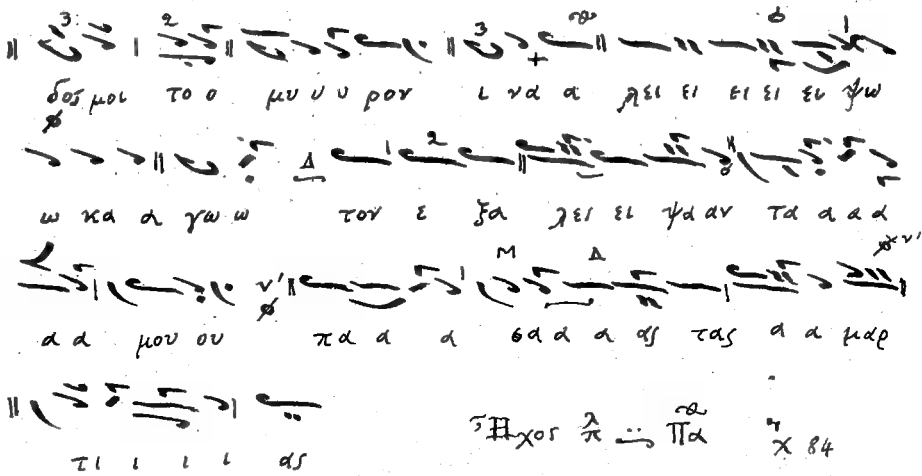 δός μοι το ο μυ υ υ ρον ι να α λει ει ει ει ει ψω
ω κα α γω ω τον ε ξα λει ει ψα αν τα α α α
α α μου ου πα α α σα α α ας τας α α μαρ
τι ι ι ι ας Ἦχος λ π Πα χ 84